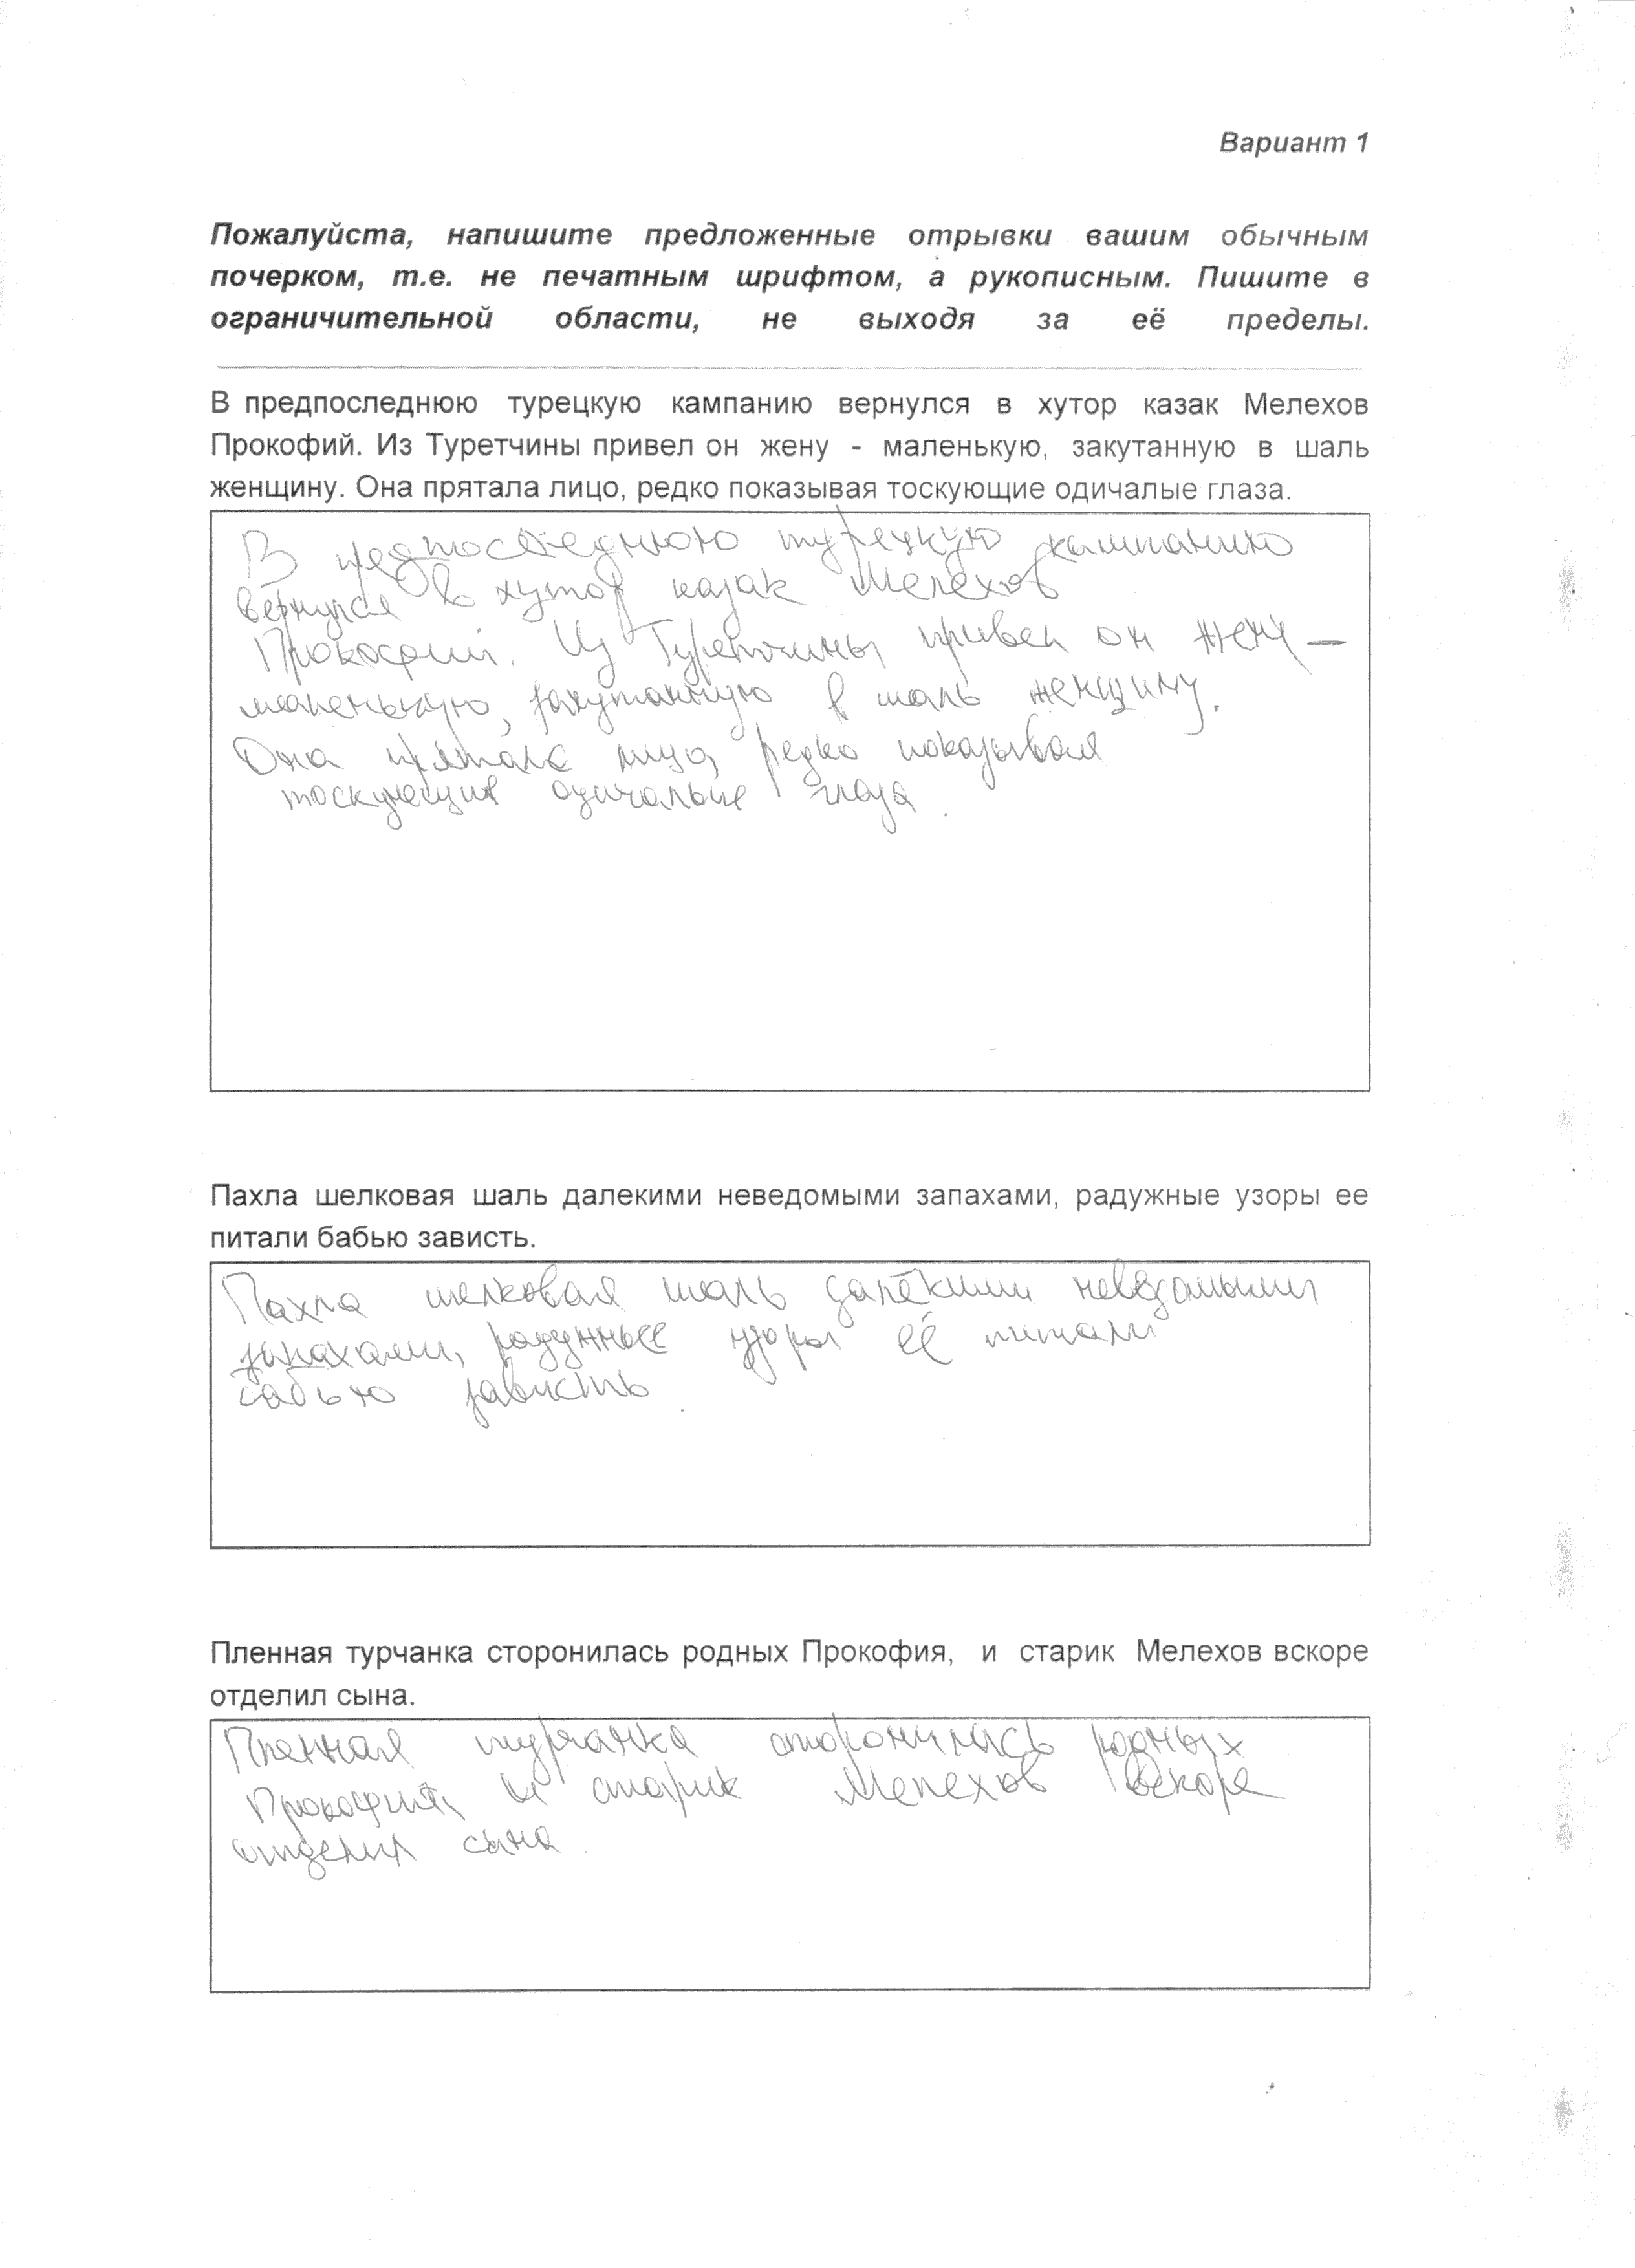 Вариант 1
Пожалуйста, напишите предложенные отрывки вашим обычным
почерком, т.е. не печатным шрифтом, а рукописным. Пишите в
ограничительной области, не выходя за её пределы.
В предпоследнюю турецкую кампанию вернулся в хутор казак Мелехов
Прокофий. Из Туретчины привел он жену - маленькую, закутанную в шаль
женщину. Она прятала лицо, редко показывая тоскующие одичалые глаза.
В предпоследнюю турецкую кампанию
вернулся в хутор казак Мелехов
Прокофий. Из Туретчины привел он жену —
маленькую, закутанную в шаль женщину.
Она прятала лицо, редко показывая
тоскующие одичалые глаза.
Пахла шелковая шаль далекими неведомыми запахами, радужные узоры ее
питали бабью зависть.
Пахла шелковая шаль далёкими неведомыми
запахами, радужные узоры её питали
бабью зависть.
Пленная турчанка сторонилась родных Прокофия, и старик Мелехов вскоре
отделил сына.
Пленная турчанка сторонилась родных
Прокофия, и старик Мелехов вскоре
отделил сына.